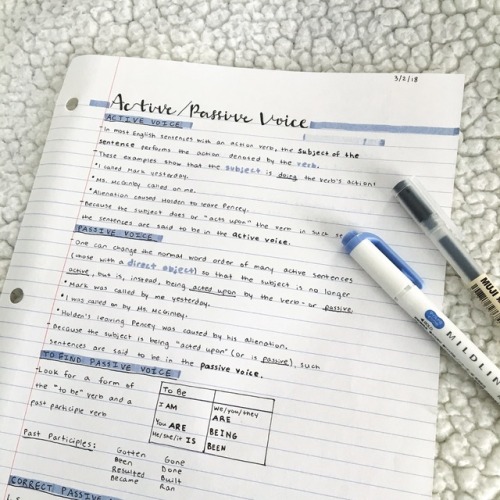 3/2/18
Active/Passive Voice
ACTIVE VOICE
- In most English sentences with an action verb, the subject of the
sentence performs the action denoted by the verb.
- These examples show that the subject is doing the verb's action!
• I called Mark yesterday.
• Ms. McGinby called on me.
• Alienation caused Holden to leave Pencey.
- Because the subject does or "acts upon" the verb in such se
the sentences are said to be in the active voice.
PASSIVE VOICE
- One can change the normal word order of many active sentences
(those with a direct object) so that the subject is no longer
active, but is, instead, being acted upon by the verb - or passive.
• Mark was called by me yesterday.
• I was called on by Ms. McGinby.
• Holden's leaving Pencey was caused by his alienation.
- Because the subject is being "acted upon" (or is passive), such
sentences are said to be in the passive voice.
TO FIND PASSIVE VOICE
- Look for a form of
the "to be" verb and a
past participle verb
To Be
I AM
we/you/they ARE
You ARE
BEING
He/she/it IS
BEEN
Past Participles:
Gotten Gone
Been Done
Resulted Built
Became Ran
CORRECT! PASSIVE
MUJI
MILDLI